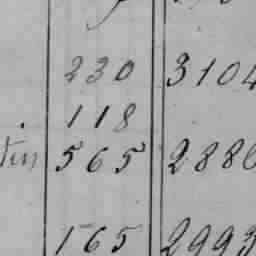 230 3104
118
565 2886
165 2993